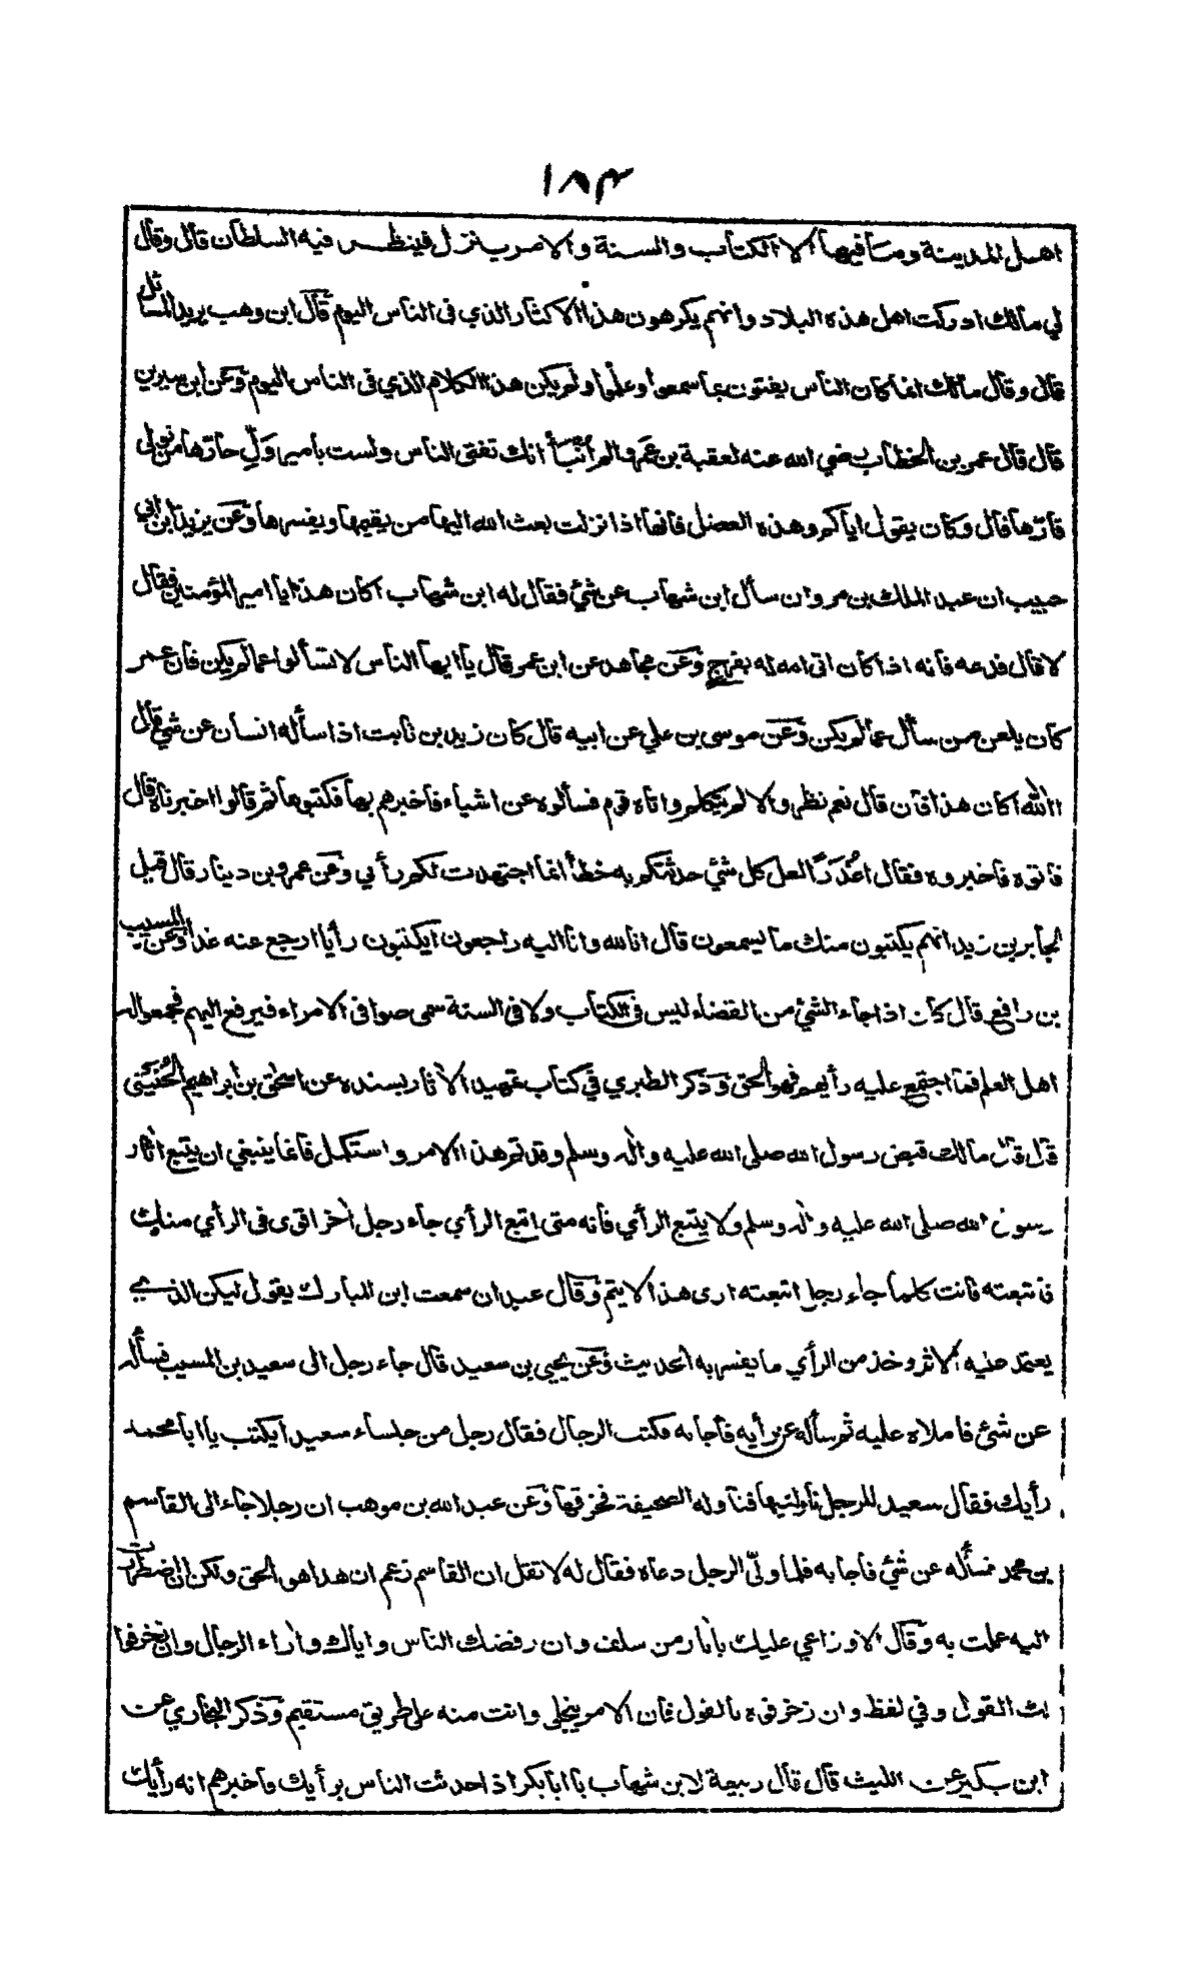 ١٨٣
اهل المدينة وما فيها الا الكتاب والسنة والامر ينزل فينظر فيه السلطان قال وقال
لي مالك ادركت اهل هذه البلاد وانهم يكرهون هذا الاكثار الذي في الناس اليوم قال ابن وهب يريد المسائل
قال وقال مالك انما كان الناس يفتون بما سمعوا وعلموا ولم يكن هذا الكلام الذي في الناس اليوم وعن ابن سيرين
قال قال عمر بن الخطاب رضي الله عنه لعقبة بن عمرو الم انبأ انك تفتي الناس ولست بامير وَلِّ حارّها من تولى
قارّها قال وكان يقول اياكم وهذه العضل فانها اذا نزلت بعث الله اليها من يقيمها ويفسرها وعن يزيد ابن ابي
حبيب ان عبد الملك بن مروان سأل ابن شهاب عن شئ فقال له ابن شهاب اكان هذا يا امير المؤمنين فقال
لا قال فدعه فانه اذا كان اتى امه له بفرج وعن مجاهد عن ابن عمر قال يا ايها الناس لا تسألوا عما لم يكن فان عمر
كان يلعن من سأل عما لم يكن وعن موسى بن علي عن ابيه قال كان زيد بن ثابت اذا سأله انسان عن شئ قال
االله اكان هذا فان قال نعم نظر والا لم يتكلم واتاه قوم فسألوه عن اشياء فاخبرهم بها فكتبوها ثم قالوا اخبرناه قال
فاتوه فاخبروه فقال اعُذرًا لعل كل شئ حدثتكم به خطأ انما اجتهدت لكم رأيي وعن عمرو بن دينار قال قيل
لجابر بن زيد انهم يكتبون منك ما يسمعون قال انا لله وانا اليه راجعون ايكتبون رأيا ارجع عنه غدا وعن المسيب
بن رافع قال كان اذا جاء الشئ من القضاء ليس في الكتاب ولا في السنة سمى صوافى الامراء فيرفع اليهم فجمعوا له
اهل العلم فما اجتمع عليه رأيهم فهو الحق وذكر الطبري في كتاب تهذيب الآثار بسنده عن اسحق بن ابراهيم الحُنَيني
قال قال مالك قبض رسول الله صلى الله عليه واله وسلم وقد تم هذا الامر واستكمل فانما ينبغي ان يتبع اثار
رسول الله صلى الله عليه واله وسلم ولا يتبع الرأي فانه متى اتبع الرأي جاء رجل آخر اقوى في الرأي منك
فاتبعته فانت كلما جاء رجل اتبعته ارى هذا لا يتم وقال عبدان سمعت ابن المبارك يقول ليكن الذي
يعتمد عليه الاثر وخذ من الرأي ما يفسر به الحديث وعن يحيى بن سعيد قال جاء رجل الى سعيد بن المسيب فسأله
عن شئ فاملاه عليه ثم سأله عن رأيه فاجابه فكتب الرجال فقال رجل من جلساء سعيد ايكتب يا ابا محمد
رأيك فقال سعيد للرجل ناولنيها فناوله الصحيفة فخرقها وعن عبد الله بن موهب ان رجلا جاء الى القاسم
بن محمد فسأله عن شئ فاجابه فلما ولّى الرجل دعاه فقال له لا تقل ان القاسم زعم ان هذا هو الحق ولكن ان اضطررت
اليه عملت به وقال الاوزاعي عليك باثار من سلف وان رفضك الناس واياك وآراء الرجال وان زخرفوا
لك القول وفي لفظ وان زخرفوه بالقول فان الامر ينجلي وانت منه على طريق مستقيم وذكر البخاري عن
ابن بكير عن الليث قال قال ربيعة لابن شهاب يا ابا بكر اذا حدثت الناس برأيك فاخبرهم انه رأيك